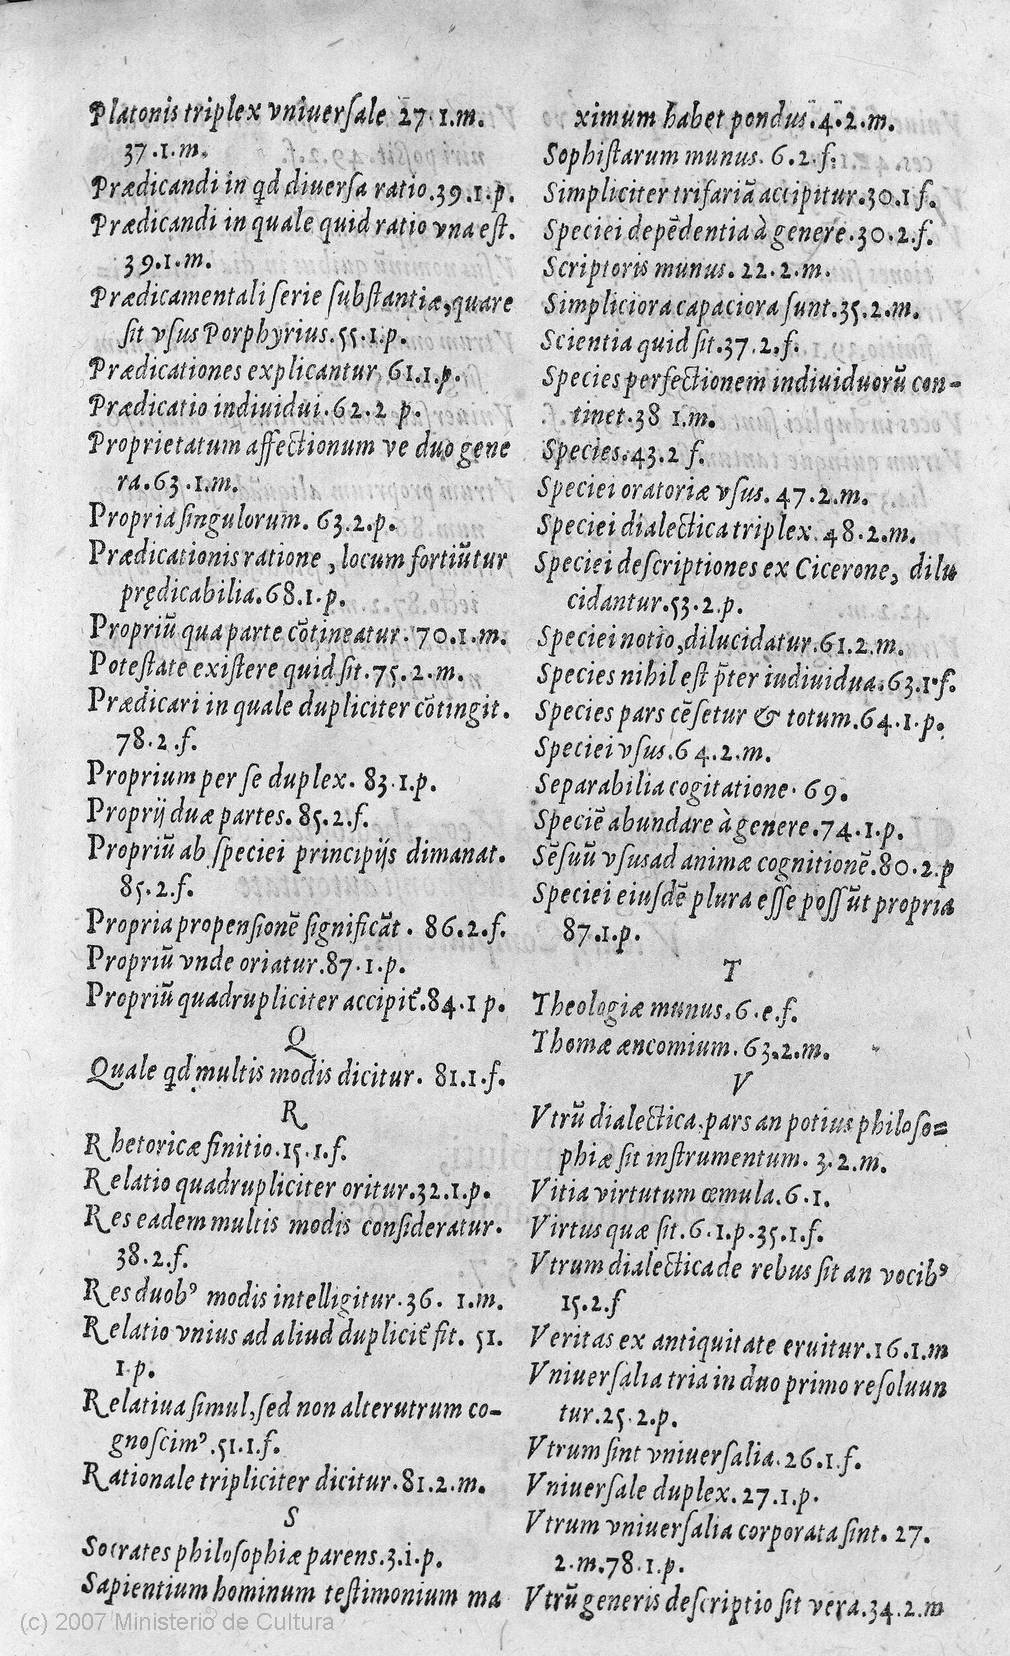 Platonis triplex vniuerſale 27.1.m.
37.1.m.
Prædicandi in qd diuerſa ratio.39.1.p.
Prædicandi in quale quid ratio vna eſt.
39.1.m.
Prædicamentali ſerie ſubſtantiæ,quare
ſit vſus Porphyrius.55.1.p.
Prædicationes explicantur 61.1.p.
Prædicatio indiuidui.62.2 p.
Proprietatum affectionum ve duo gene
ra.63.1.m.
Propria ſingulorum. 63.2.p.
Prædicationis ratione , locum fortiūtur
prędicabilia.68.1.p.
Propriū qua parte cōtineatur. 70.1.m.
Poteſtate exiſtere quid ſit.75.2.m.
Prædicari in quale dupliciter cōtingit.
78.2.f.
Proprium per ſe duplex. 83.1.p.
Proprij duæ partes. 85.2.f.
Propriū ab ſpeciei principijs dimanat.
85.2.f.
Propria propenſionē ſignificāt. 86.2.f.
Propriū vnde oriatur.87.1.p.
Propriū quadrupliciter accipit̄.84.1 p.
Q
Quale qd multis modis dicitur. 81.1.f.
R
Rhetoricæ finitio.15.1.f.
Relatio quadrupliciter oritur.32.1.p.
Res eadem multis modis conſideratur.
38.2.f.
Res duobꝰ modis intelligitur.36. 1.m.
Relatio vnius ad aliud duplicit̄ fit. 51.
1.p.
Relatiua ſimul,ſed non alterutrum co-
gnoſcimꝰ.51.1.f.
Rationale tripliciter dicitur.81.2.m.
S
Socrates philoſophiæ parens.3.i.p.
Sapientium hominum teſtimonium ma
ximum habet pondus.4.2.m.
Sophiſtarum munus. 6.2.f.
Simpliciter trifariā accipitur.30.1 f.
Speciei depēdentia à genere.30.2.f.
Scriptoris munus. 22.2.m.
Simpliciora capaciora ſunt.35.2.m.
Scientia quid ſit.37.2.f.
Species perfectionem indiuiduorū con-
tinet.38 1.m.
Species.43.2 f.
Speciei oratoriæ vſus. 47.2.m.
Speciei dialectica triplex. 48.2.m.
Speciei deſcriptiones ex Cicerone, dilu
cidantur.53.2.p.
Speciei notio,dilucidatur.61.2.m.
Species nihil eſt p̄ter iudiuidua.63.1.f.
Species pars cēſetur & totum.64.1.p.
Speciei vſus.64.2.m.
Separabilia cogitatione. 69.
Speciē abundare à genere.74.1.p.
Sēſuū vſus ad animæ cognitionē.80.2.p
Speciei eiuſdē plura eſſe poſſūt propria
87.1.p.
T
Theologiæ munus.6.e.f.
Thomæ æncomium.63.2.m.
V
Vtrū dialectica,pars an potius philoſo=
phiæ ſit inſtrumentum. 3.2.m.
Vitia virtutum œmula.6.1.
Virtus quæ ſit.6.1.p.35.1.f.
Vtrum dialectica de rebus ſit an vocibꝰ
15.2.f
Veritas ex antiquitate eruitur.16.1.m
Vniuerſalia tria in duo primo reſoluun
tur.25.2.p.
Vtrum ſint vniuerſalia.26.1.f.
Vniuerſale duplex.27.1.p.
Vtrum vniuerſalia corporata ſint. 27.
2.m.78.1.p.
Vtrū generis deſcriptio ſit vera.34.2.m
(c) 2007 Ministerio de Cultura